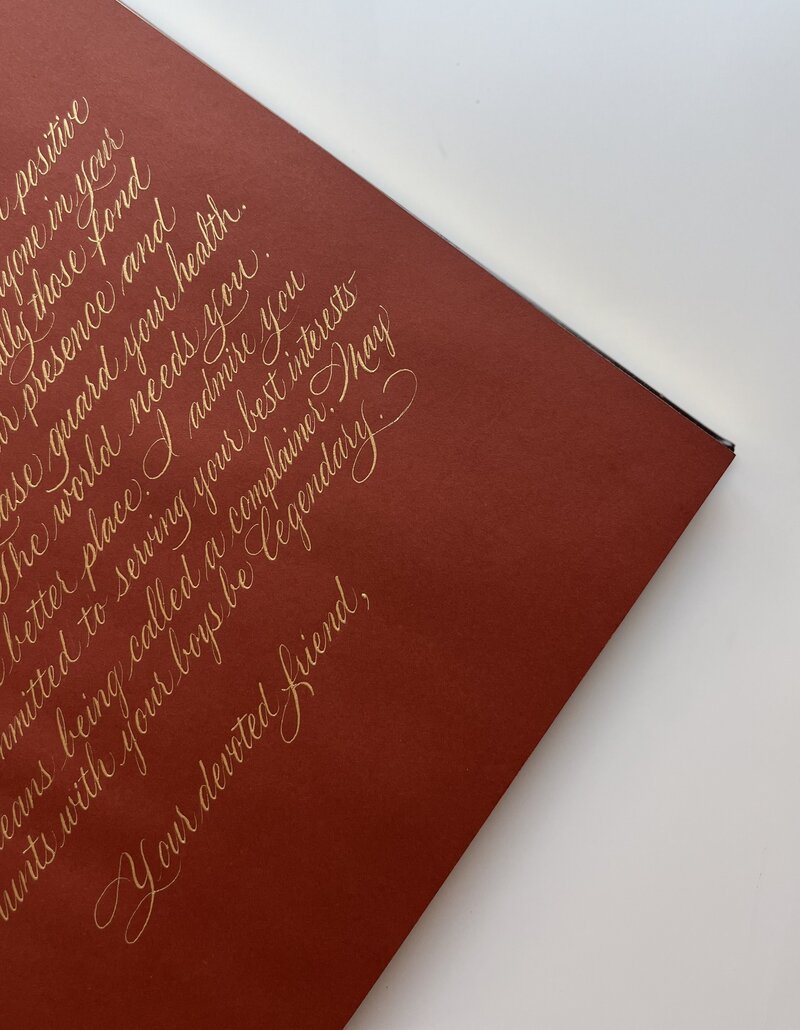 positive
in your
those fond
presence and
guard your health.
The world needs you.
better place. I admire you
to serving your best interests
being called a complainer. May
with your boys be legendary.
Your devoted friend,